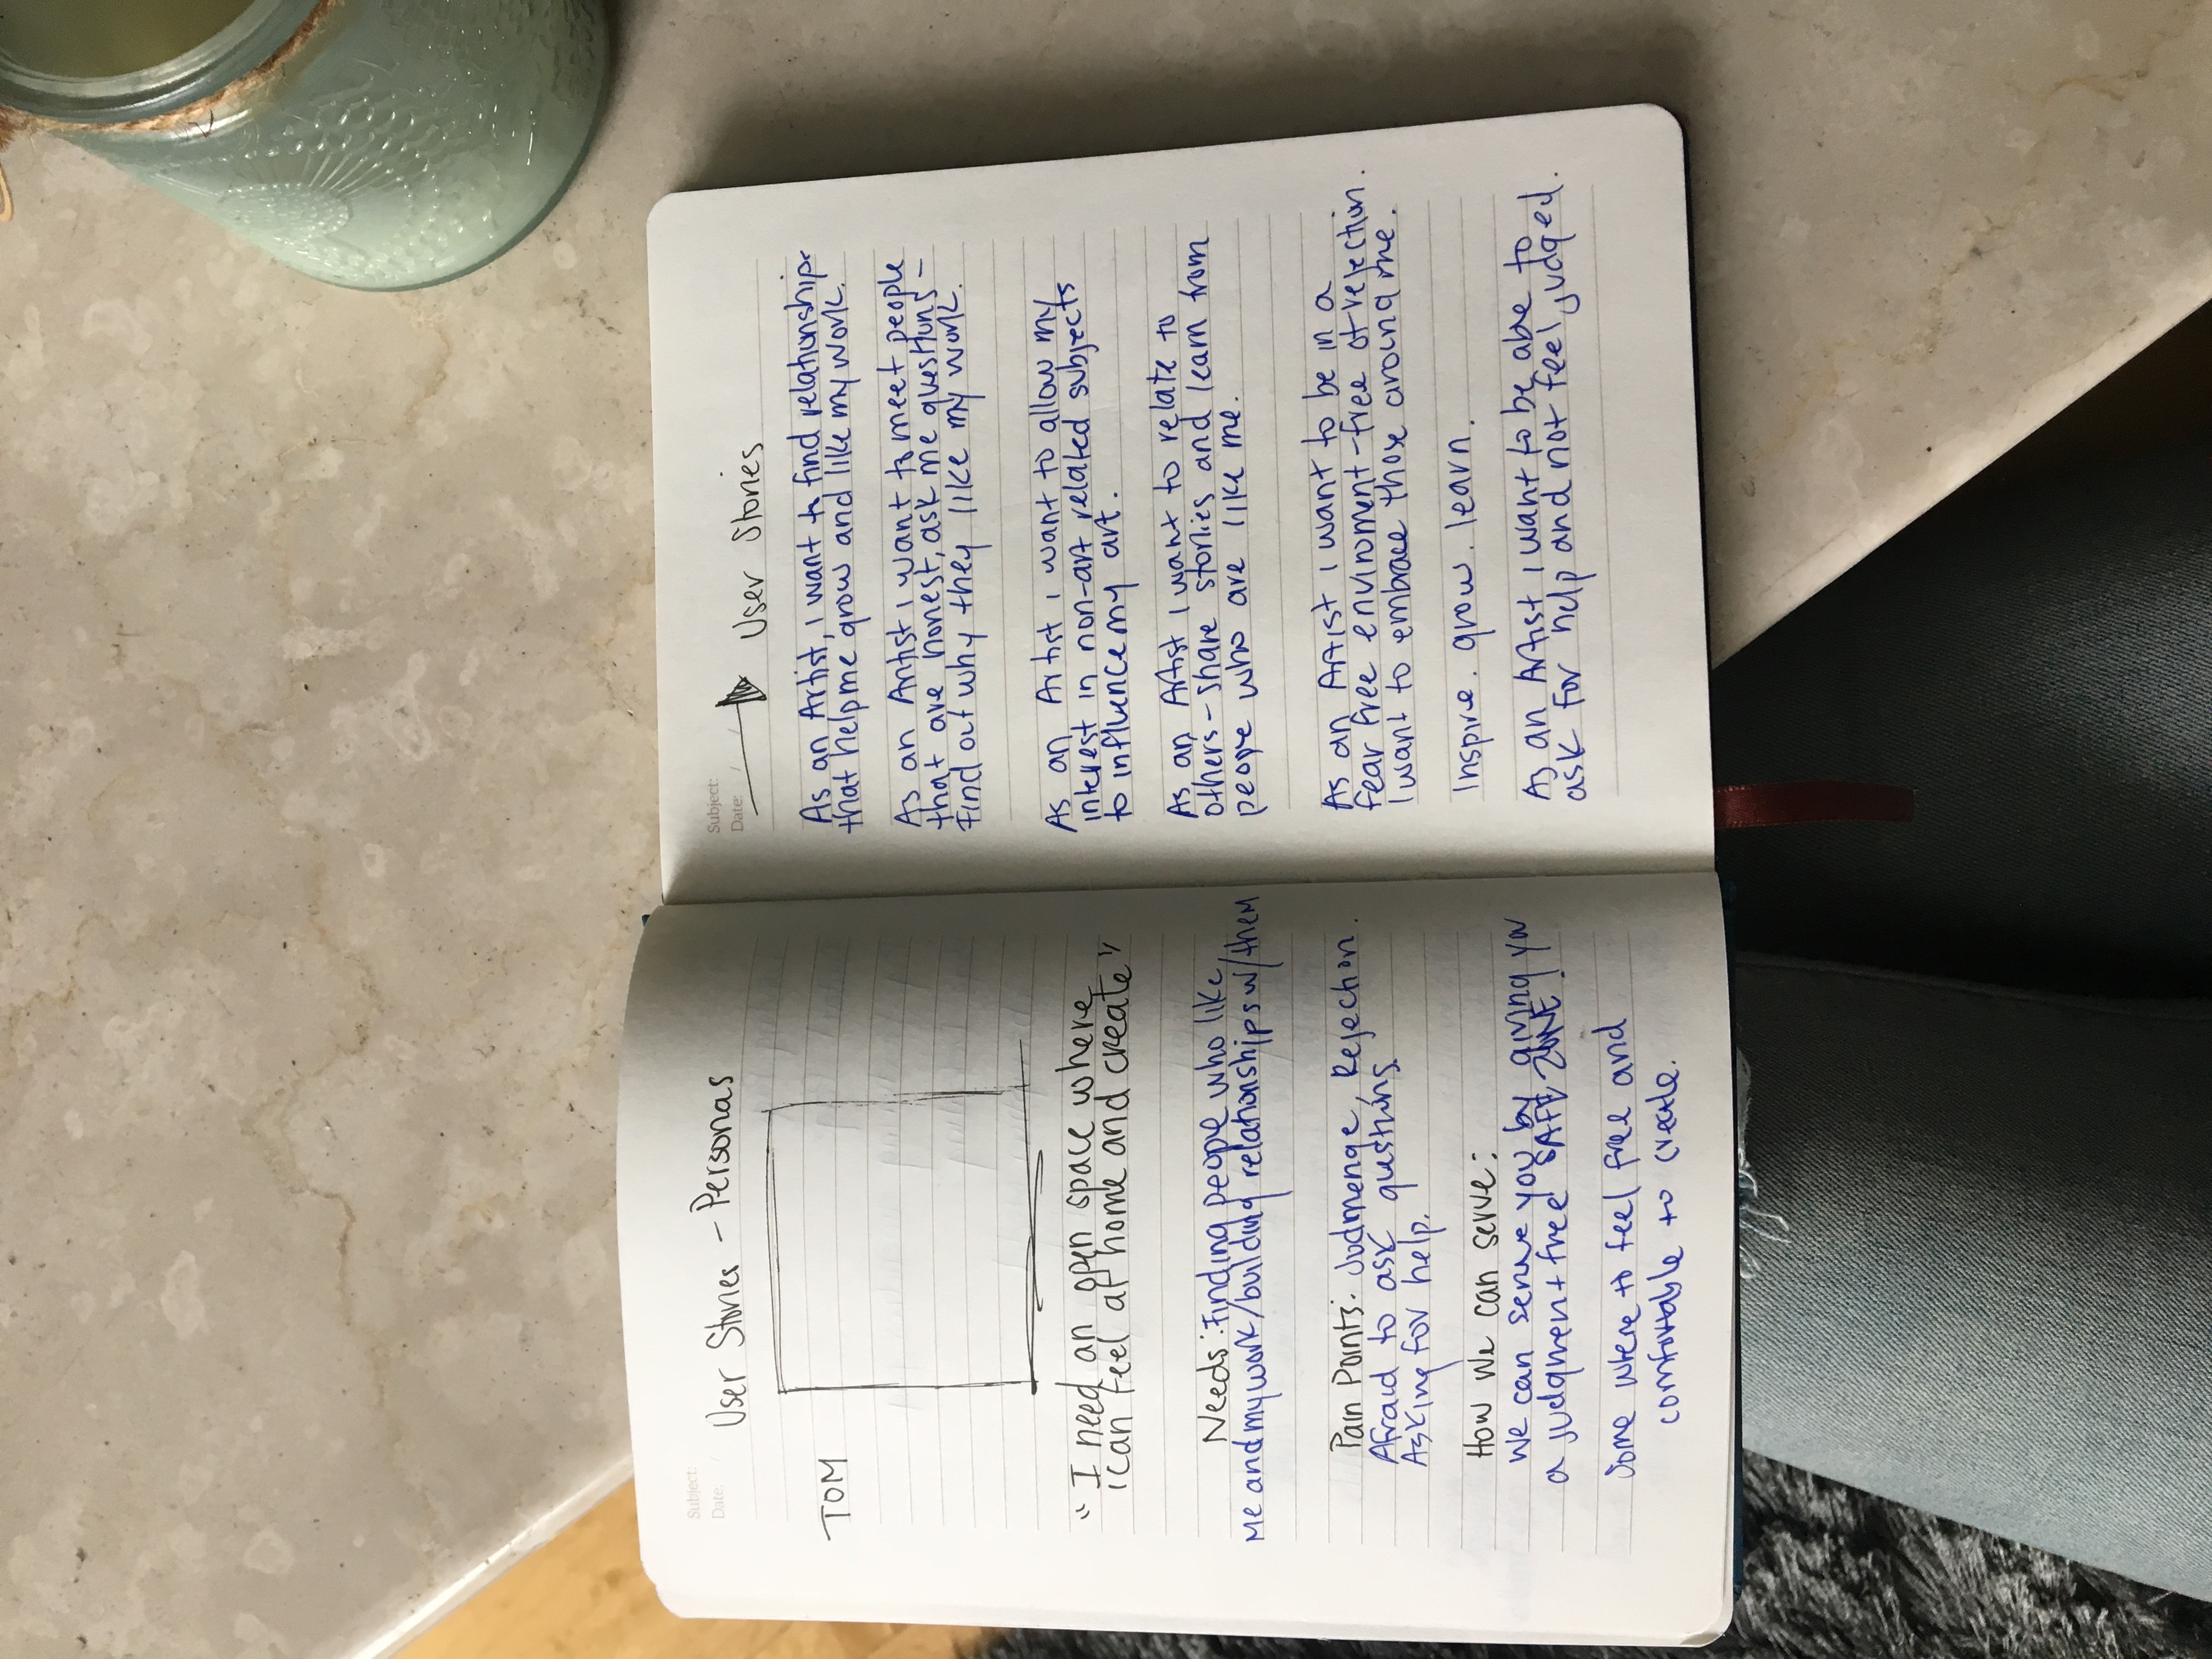 Subject:
Date: /
User Stories - Personas
TOM
"I need an open space where
i can feel at home and create"
Needs: Finding people who like
me and my work/building relationships w/them
Pain Points: Judmenge, Rejection.
Afraid to ask questions
Asking for help.
How we can serve:
we can serve you by giving you
a judgment free SAFE ZONE!
Some where to feel free and
comfortable to create.
Subject:
Date: / /
User Stories
As an Artist, I want to find relationships
that help me grow and like my work.
As an Artist I want to meet people
that are honest, ask me questions -
Find out why they like my work.
As an Artist I want to allow my
interest in non-art related subjects
to influence my art.
As an Artist I want to relate to
others - share stories and learn from
people who are like me.
As an Artist I want to be in a
fear free enviroment - free of rejection.
I want to embrace those around me.
Inspire. grow. learn.
As an Artist I want to be able to
ask for help and not feel judged.